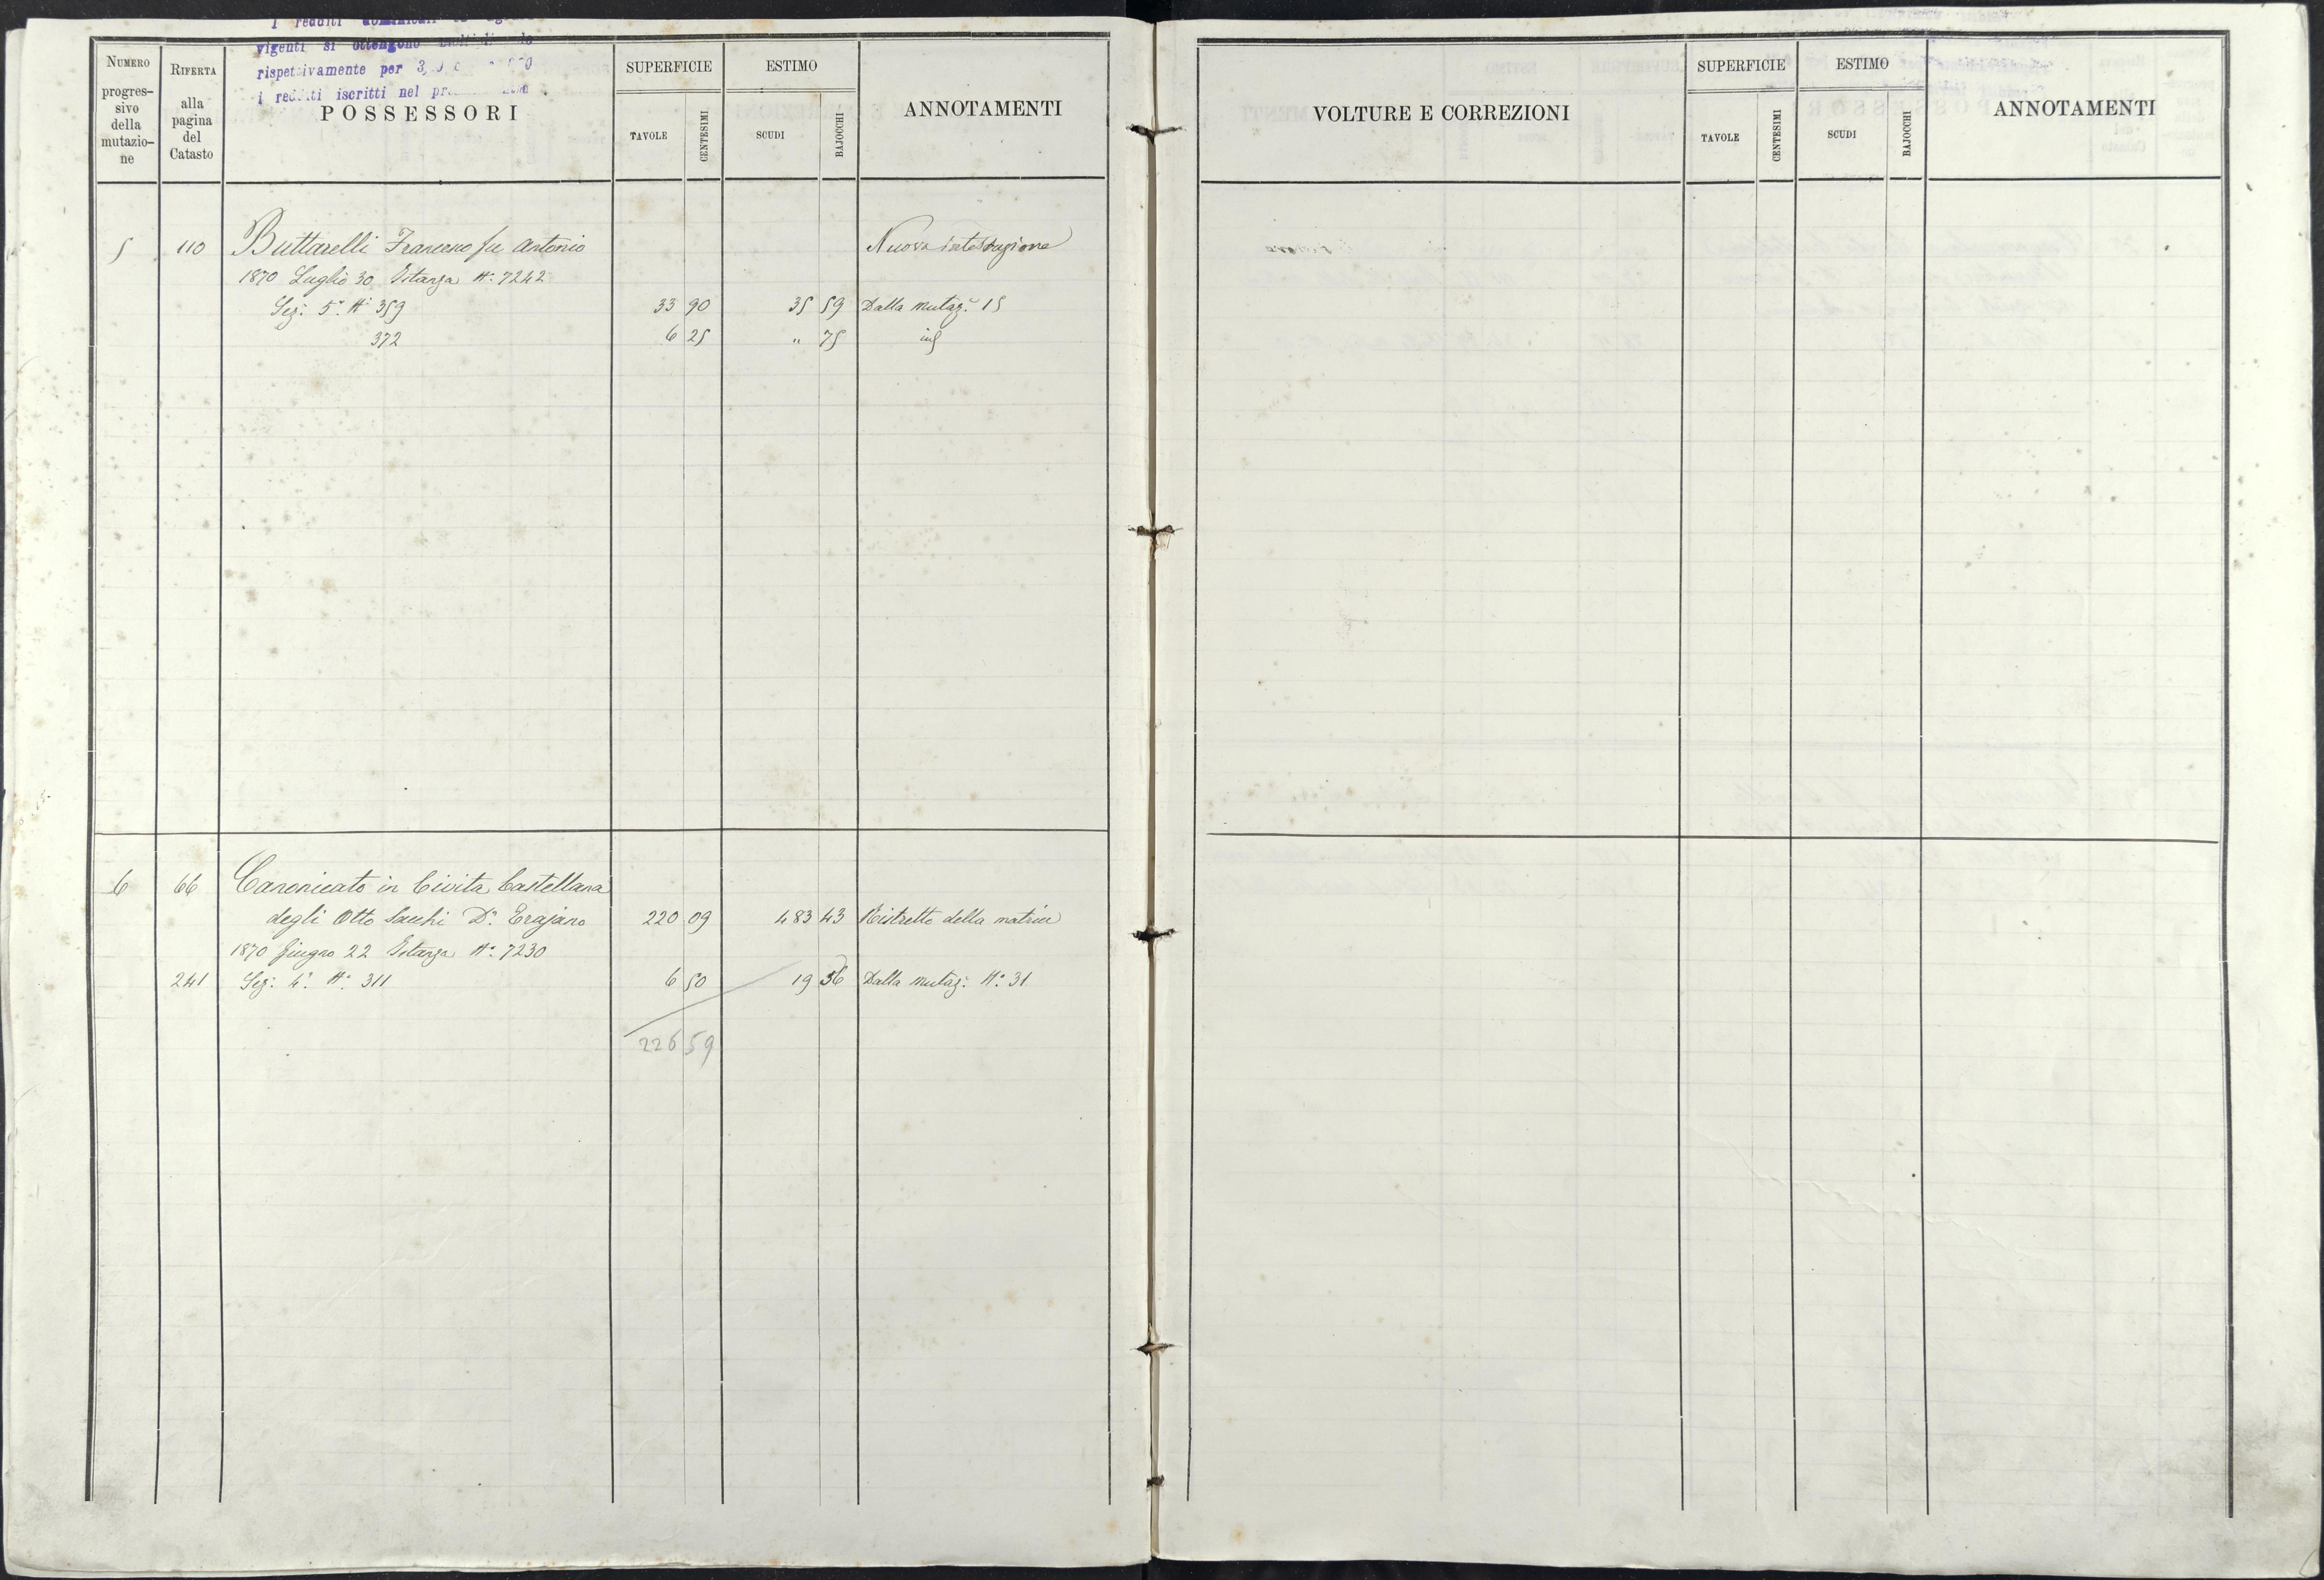 I redditi
vigenti si ottengono
rispettivamente per
i redditi iscritti nel
NUMERO
progres-
sivo
della
mutazio-
ne
RIFERTA
alla
pagina
del
Catasto
POSSESSORI
SUPERFICIE
TAVOLE
CENTESIMI
ESTIMO
SCUDI
BAJOCCHI
ANNOTAMENTI
5 110 Buttarelli Francesco fu Antonio Nuova intestazione
1870 Luglio 30 Istanza N.º 7242
Sez: 5.ª N.º 359 33 90 35 59 Dalla mutaz: 15
372 6 25 " 75 id
6 66 Canonicato in Civita Castellana
degli Otto Sacchi Dn. Erajano 220 09 483 43 Ristretto della matrice
1870 Giugno 22 Istanza N.º 7230
241 Sez: 4.ª N.º 311 6 50 19 36 Dalla mutaz: N.º 31
226 59
VOLTURE E CORREZIONI
SUPERFICIE
TAVOLE
CENTESIMI
ESTIMO
SCUDI
BAJOCCHI
ANNOTAMENTI